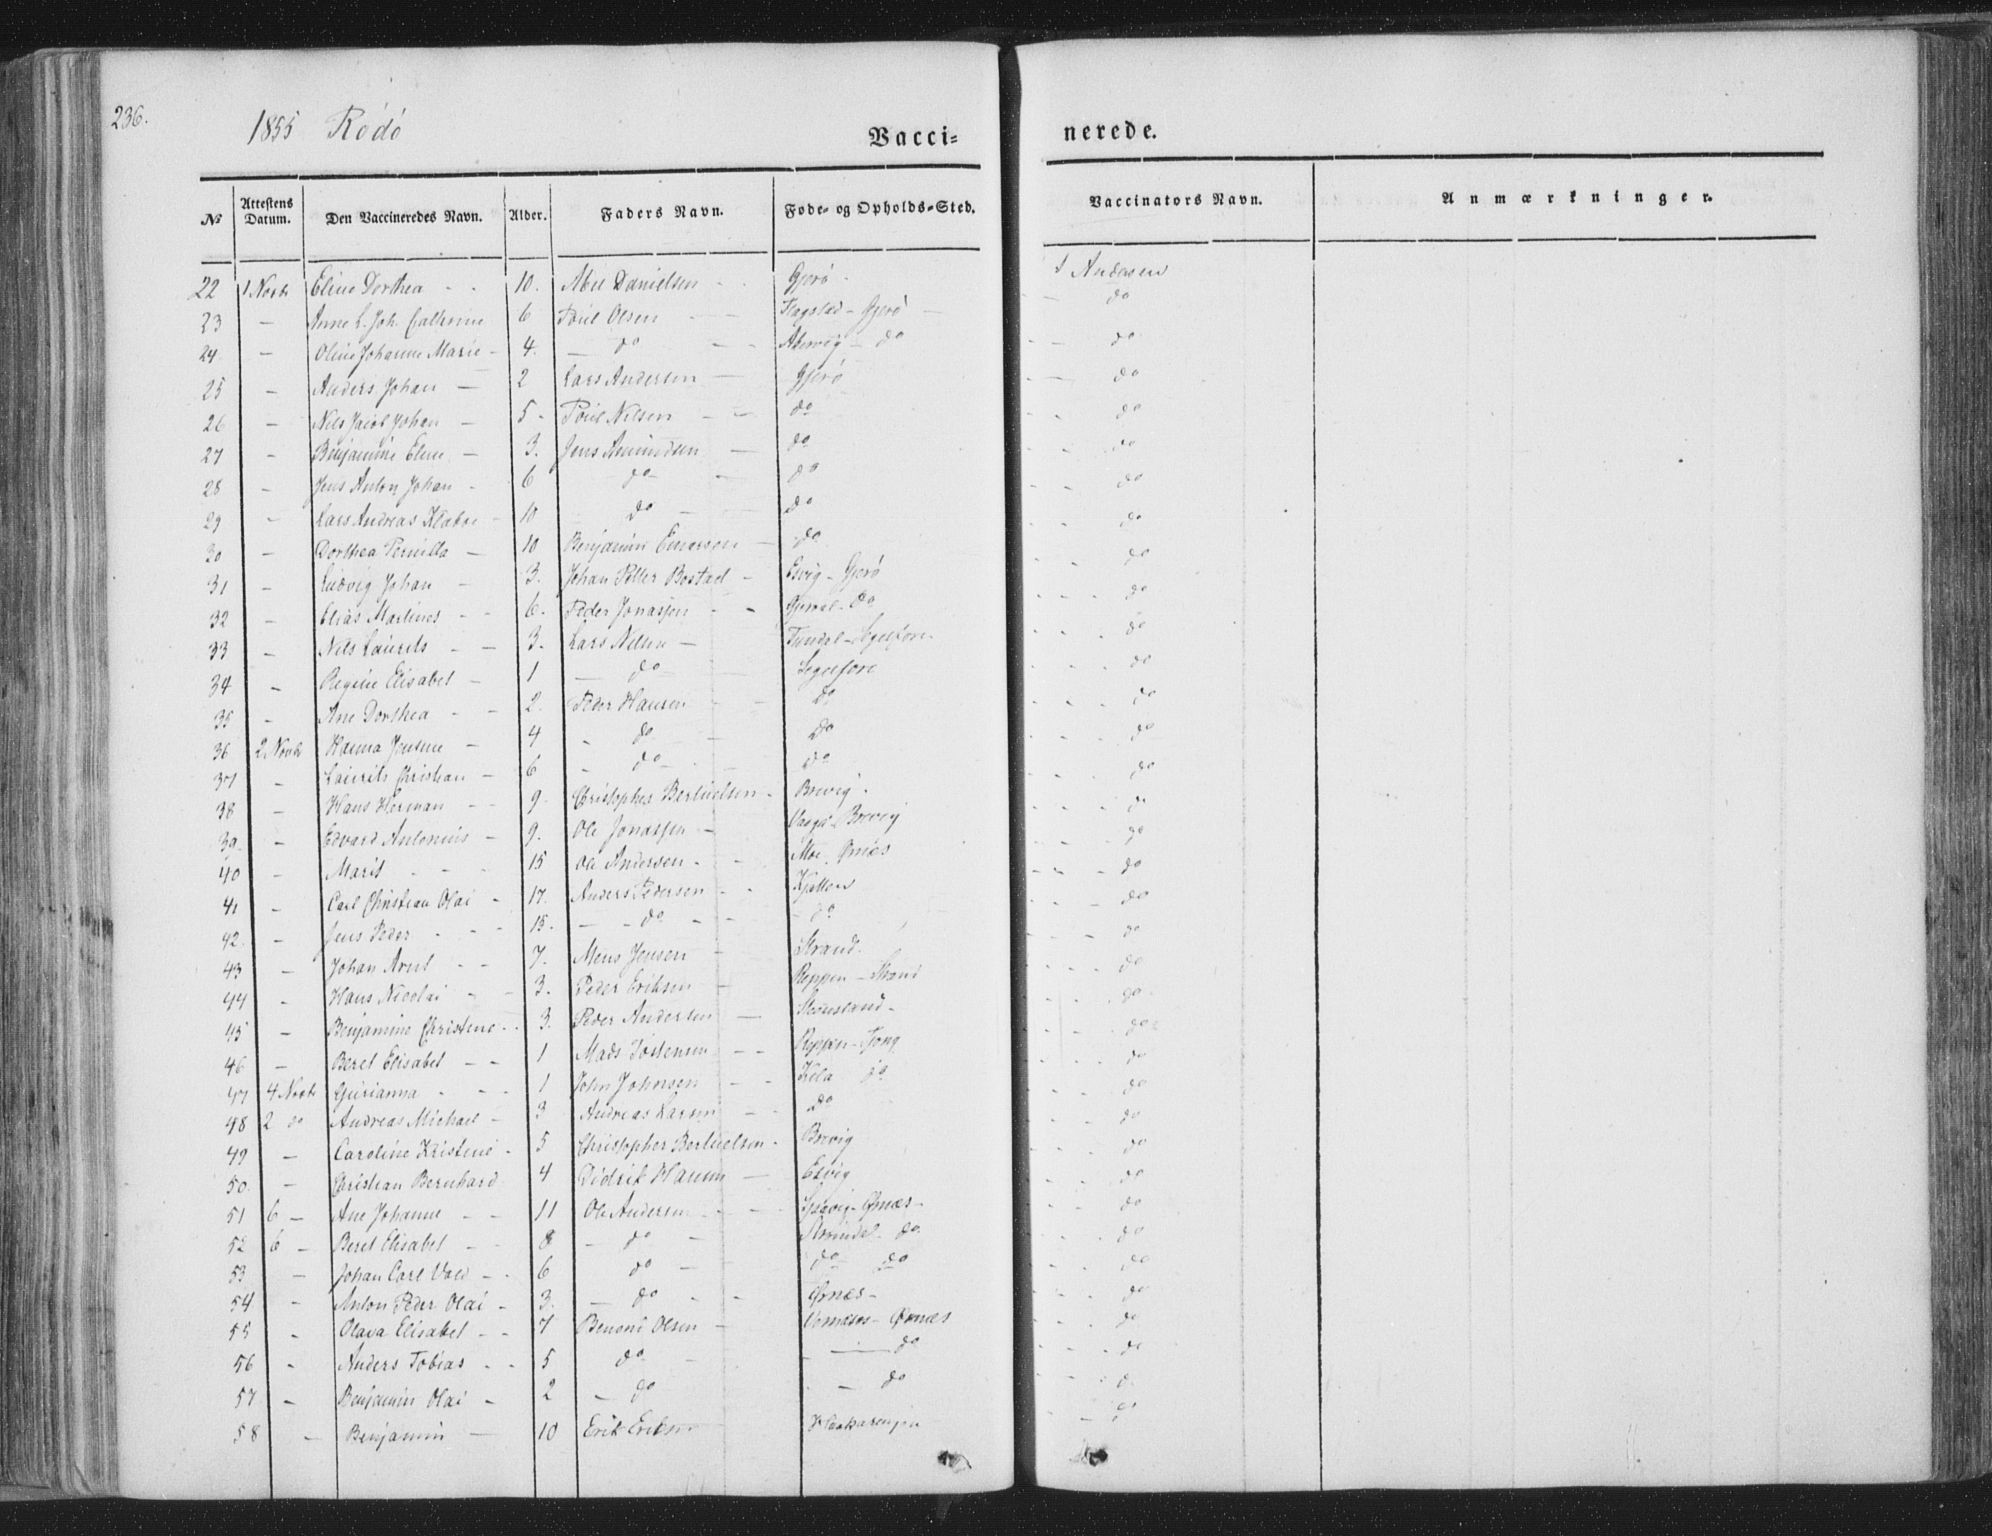 236.
1855 Rödö
Vacci= nerede.
No Attestens Datum. Den Vaccineredes Navn. Alder. Faders Navn. Føde- og Opholds-Sted. Vaccinators Navn. Anmærkninger.
22 1 Novbr Eline Dorthea - - 10. Abel Danielsen - - Gjerö - Andersen
23 - Anne L. Joh. Cathrine 6 Poul Olsen - - Flagstad - Gjerö - - do
24 - Oline Johanne Marie - 4. - do - - - do - - do
25 - Anders Johan - 2 Lars Andersen - Gjerö - - do
26 - Nils Jacob Johan - 5 - Poul Nilsen - - do - - do
27 - Benjamine Eline - 3. Jens Amundsen - do - - do
28 - Jens Anton Johan - 6 do - do - - do
29 - Lars Andreas - 10 - do - do - - do
30 - Dorthea Pernilla - 10 Benjamin Enersen - do - - do
31 - Ludvig Johan - 3. Johan Petter Bostad - Esvig - Gjerö - - do
32 - Elias Martinus - - 6. Peder Jonassen - - do - - do
33 - Nils Laurits - - 3. Lars Nilsen - - - - do
34 - Regine Elisabet - 1 - do - - - - do
35 - Ane Dorthea - - 2. Peder Hansen - - do - - - do
36 2 Novbr Hanna Jensine - 4 - do - do - - - do
37 - Laurits Christian - 6 - do - - do - - - do
38 - Hans Herman - - 9. Christopher Bertuelsen - Brevig - - - - do
39 - Edvard Antonius - 9. Ole Jonassen - Brevig - - - do
40 - Marit - - - 15 Ole Andersen - - Moe. Ørnæs - - - do
41 - Carl Christian Olai - 17. Anders Pedersen - - - - - do
42. - Jens Peder - - - 15. - - do - - - do - - - do
43 - Johan Arnt - - 7. Mens Jensen - Strand. - - - do
44 - Hans Nicolai - - 3. Peder Eriksen - Reppen - Strand - - - do
45 - Benjamine Christine - - 3. Peder Andersen - Stensland - - - - do
46 - Beret Elisabet - - 1 Mads - - Reppen - Tjong - - - do
47 4 Novbr Gurianna - - - 1 John Johnsen - - Kila do - - - do
48 2 do Andreas Michael - 3 Andreas Larsen - - do - - - do
49 - Caroline Kristine - 5 Christopher Bertuelsen - Brevig - - - do
50. - Christian Bernhard 4 Didrik Hansen - Esvig - - - do
51 6 - Ane Johanne - - 11 Ole Andersen - - - - Ørnæs - - - - do
52 6 - Beret Elisabet - - 8 - do - - do - - - do
53 - Johan Carl - - 6 do - - do do - - - do
54 - Anton Peder Olai - 3. - do - - Ørnæs - - - - do
55 - Olava Elisabet - - 7 Benoni Olsen - - Ørnæs - - - do
56 - Anders Tobias - - 5 do - - do - - - do
57 - Benjamin Olai - 2 - do - do - - - d.
58 - Benjamin - 10 Erik Eriksen